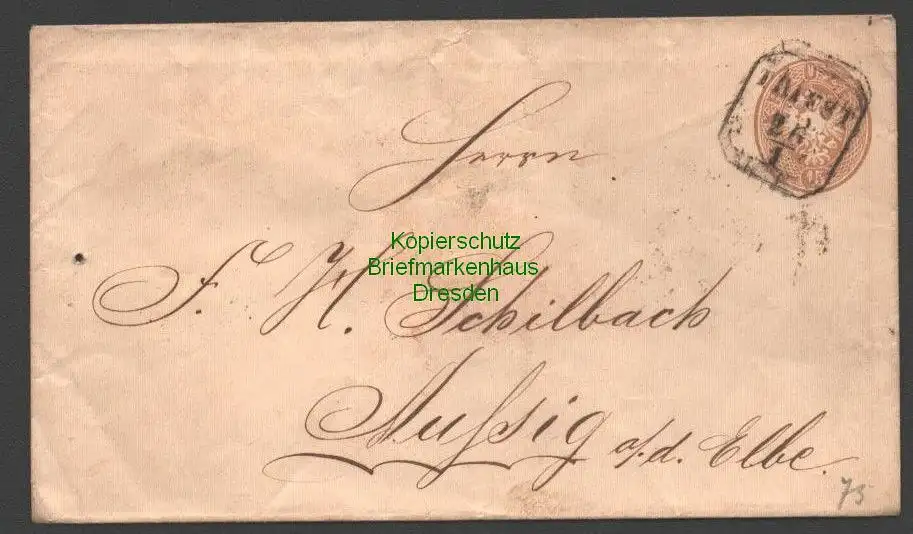 TRIEST
26
1
15
Herrn
Kopierschutz
Briefmarkenhaus
Dresden
F. H. Schilbach
Aussig a./d. Elbe.
75